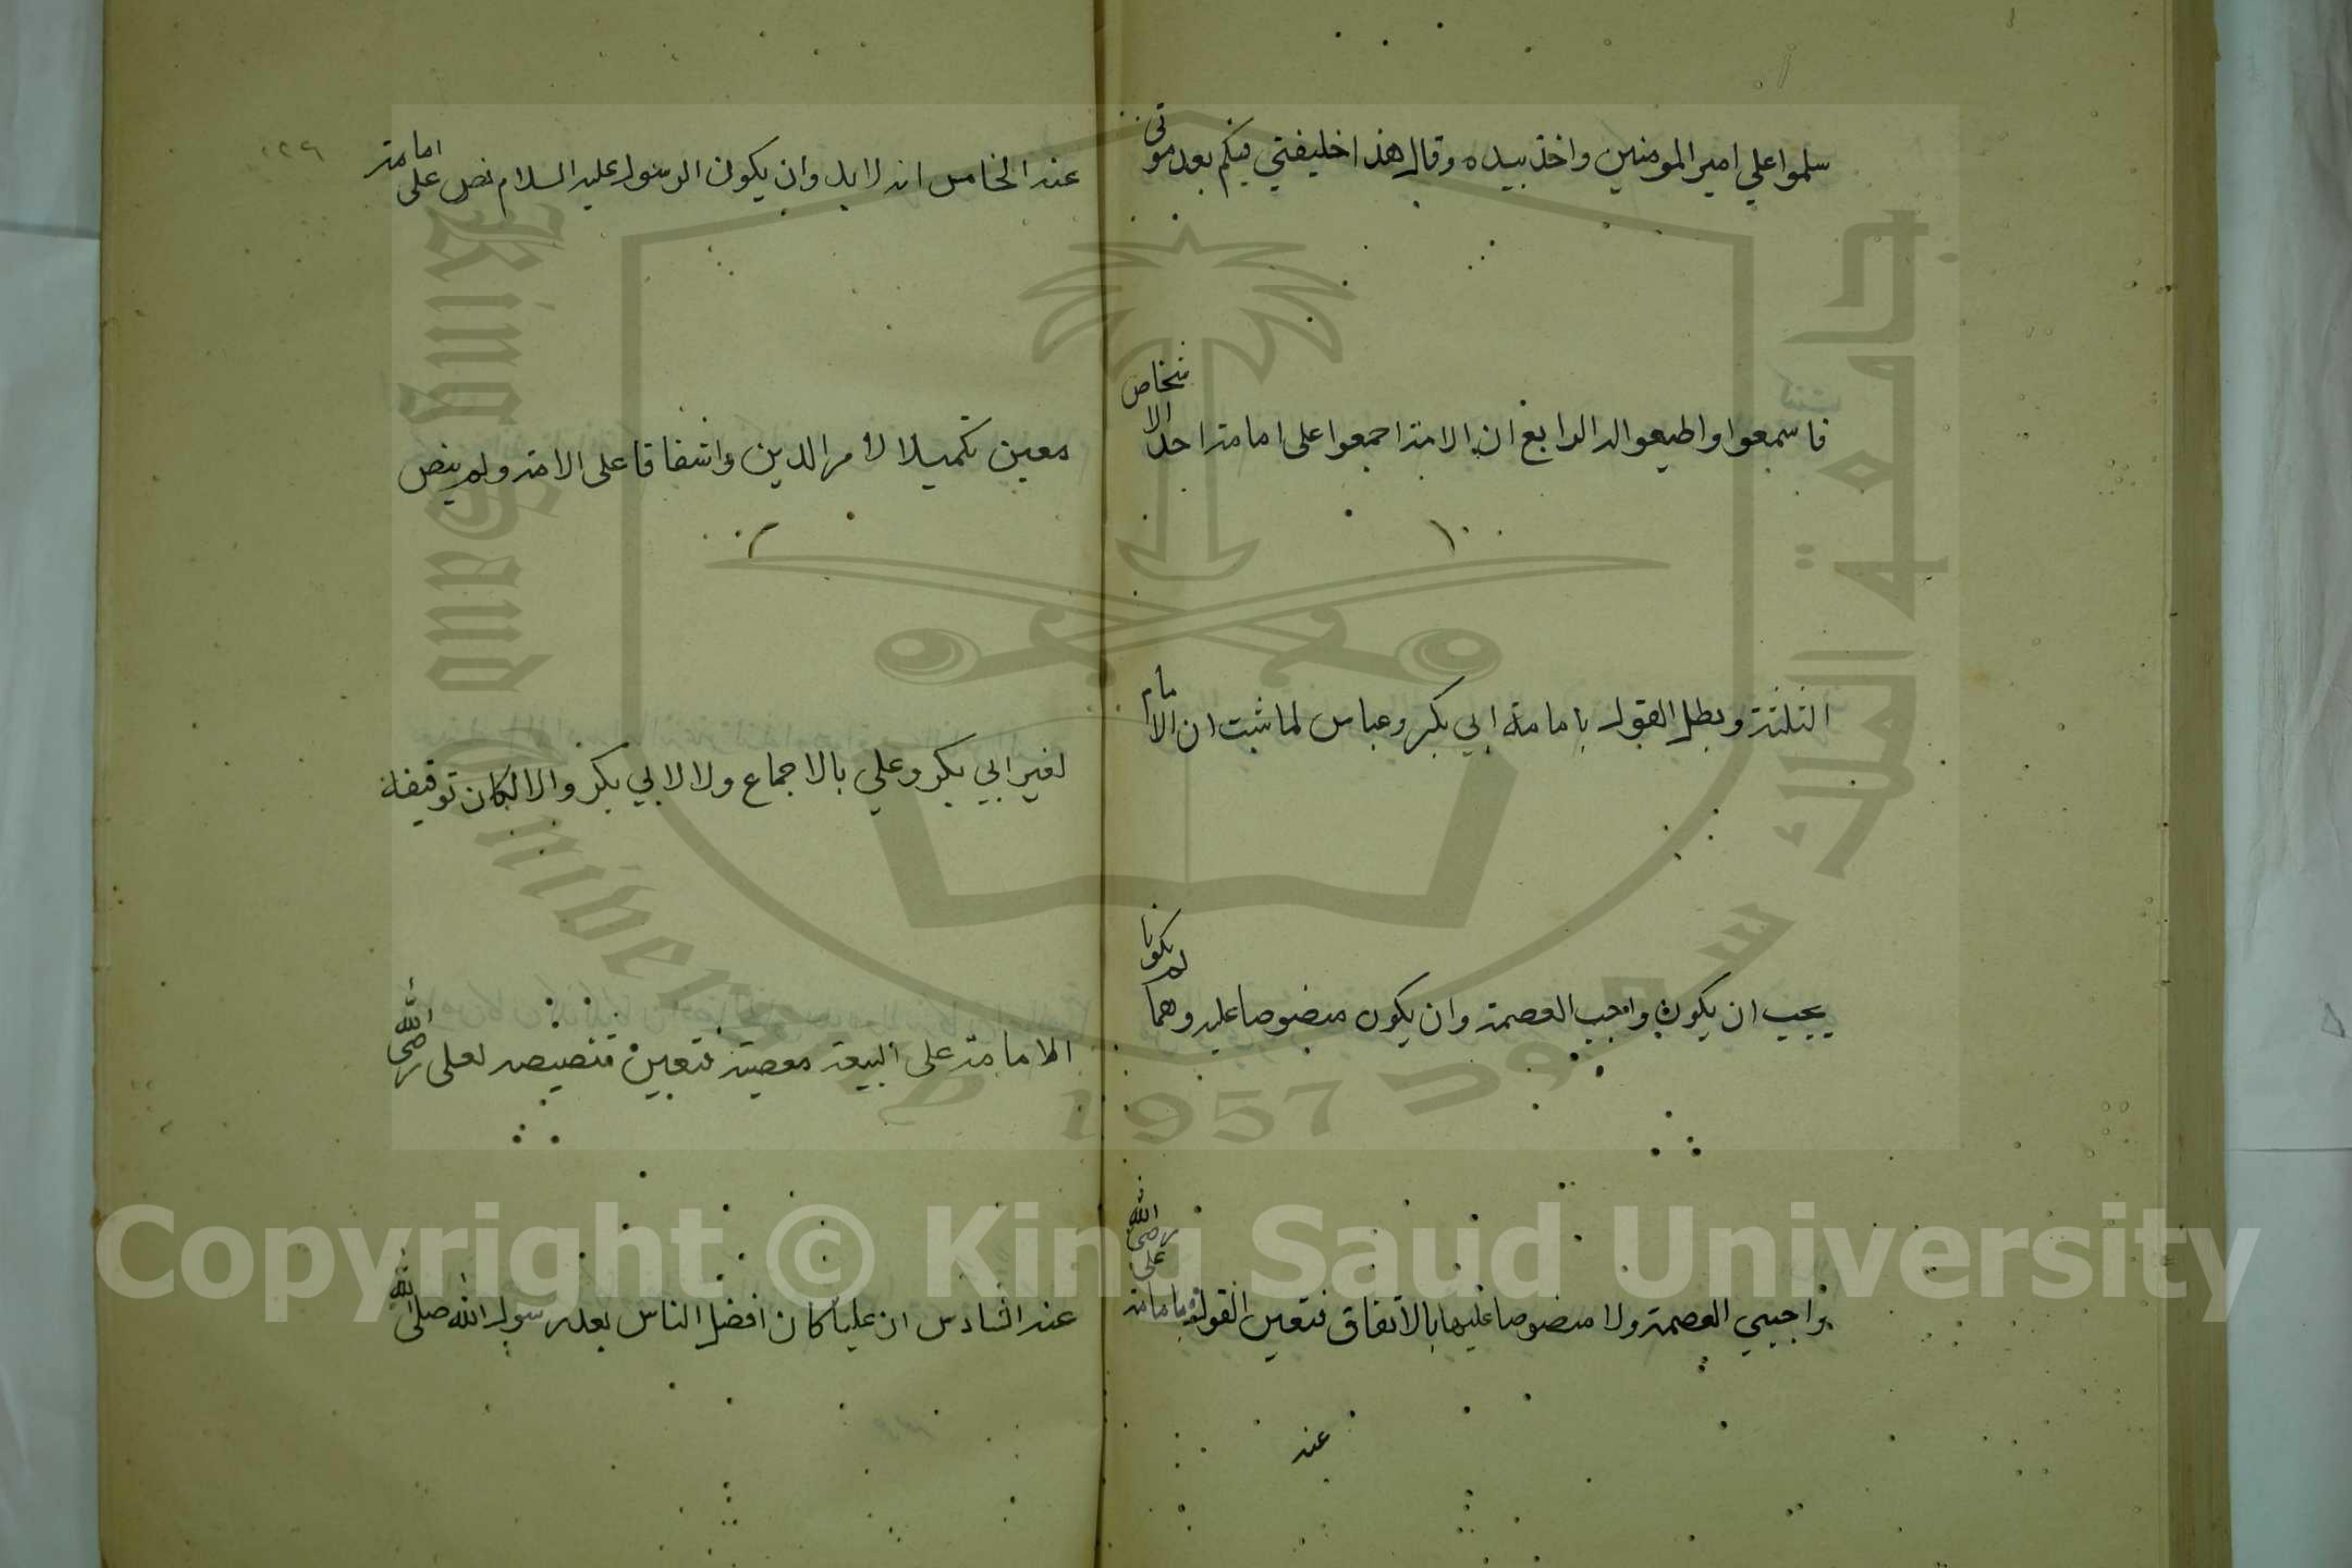 سلموا علي امير المومنين واخذ بيده وقال هذا خليفتي فيكم بعد موتي
فاسمعوا واطيعوا له الرابع ان الامة اجمعوا على امامة احد الاشخاص
الثلثة وبطل القول بامامة ابي بكر وعباس لما ثبت ان الامام
يجب ان يكون واجب العصمة وان يكون منصوصا عليه وهما لم يكونا
واجبي العصمة ولا منصوصا عليهما بالاتفاق فتعين القول بامامة على رضى الله
عنه
١٢٦
عنه الخامس انه لابد وان يكون الرسول عليه السلام نص على امامة
معين تكميلا لامر الدين واشفاقا على الامة ولم ينص
لغير ابي بكر وعلي بالاجماع ولا لابي بكر والا لكان توقيفه
الامامة على البيعة معصية فتعين تنصيصه لعلى رضى الله
عنه السادس ان عليا كان افضل الناس بعد رسول الله صلى الله
King Saud University
جامعة الملك سعود
1957
Copyright © King Saud University